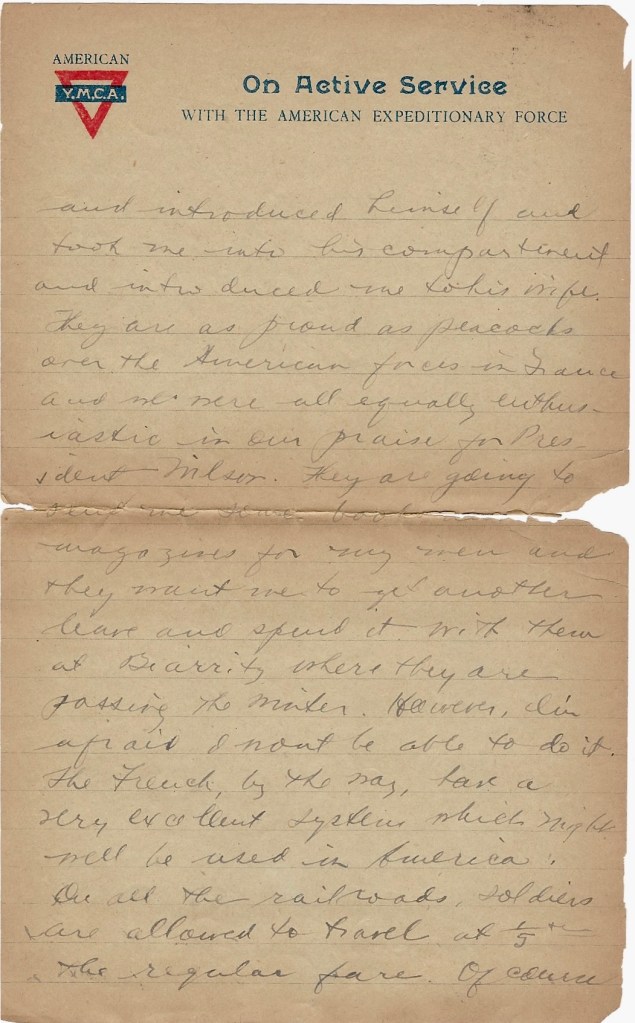 AMERICAN
Y.M.C.A.
On Active Service
WITH THE AMERICAN EXPEDITIONARY FORCE
and introduced himself and
took me into his compartment
and introduced me to his wife.
They are as proud as peacocks
over the American forces in France
and we were all equally enthus-
iastic in our praise for Pres-
ident Wilson. They are going to
send me some book
magazines for my men and
they want me to get another
leave and spend it with them
at Biarritz where they are
passing the winter. However, I'm
afraid I won't be able to do it.
The French, by the way, have a
very excellent system which might
well be used in America.
On all the railroads, soldiers
are allowed to travel at 1/5 th
the regular fare. Of course